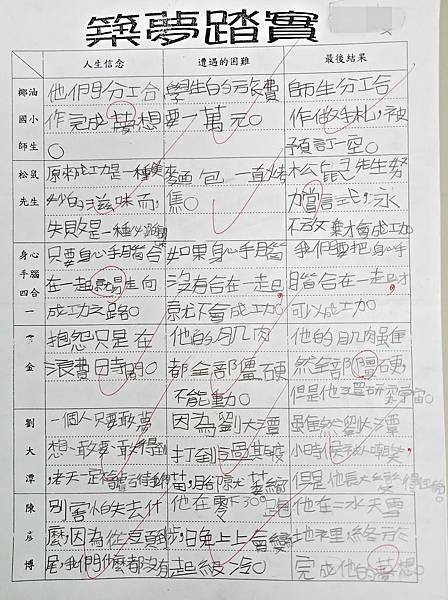 築夢踏實
人生信念 遭遇的困難 最後結果
椰油 他們分工合 學生的旅費 師生分工合
國小 作完成夢想 要一萬元。 作做手札,被
師生 。 預訂一空。
松鼠 原來成功是一種美 麵包一直烤 松鼠先生努
先生 妙的滋味而, 焦。 力嘗試,永
失敗是一種必 不放棄才會成功
身心 只要身心手腦合 如果身心手腦 我們要把身心手
手腦 在一起 生向 沒有合在一起 腦合在一起才
四合 成功之路。 就不會成功。 可以成功。
一
金 抱怨只是在 他的肌肉 他的肌肉雖
浪費時間。 都全部僵硬 然全部僵硬
不能動。 但是他還研究宇宙。
劉 一個人只要敢夢 因為劉大潭 雖然劉大潭
大 想敢要敢得到 打倒 小時候
潭 老天一定 苗,腳就萎縮 但是他長大
陳 別害怕失去什 他在零下30° 跑 他在冰天雪
彥 麼,因為從頭到 步,晚上上會變 地裡,終於
博 尾,我們什麼都沒有 超級冷。 完成他的夢想。